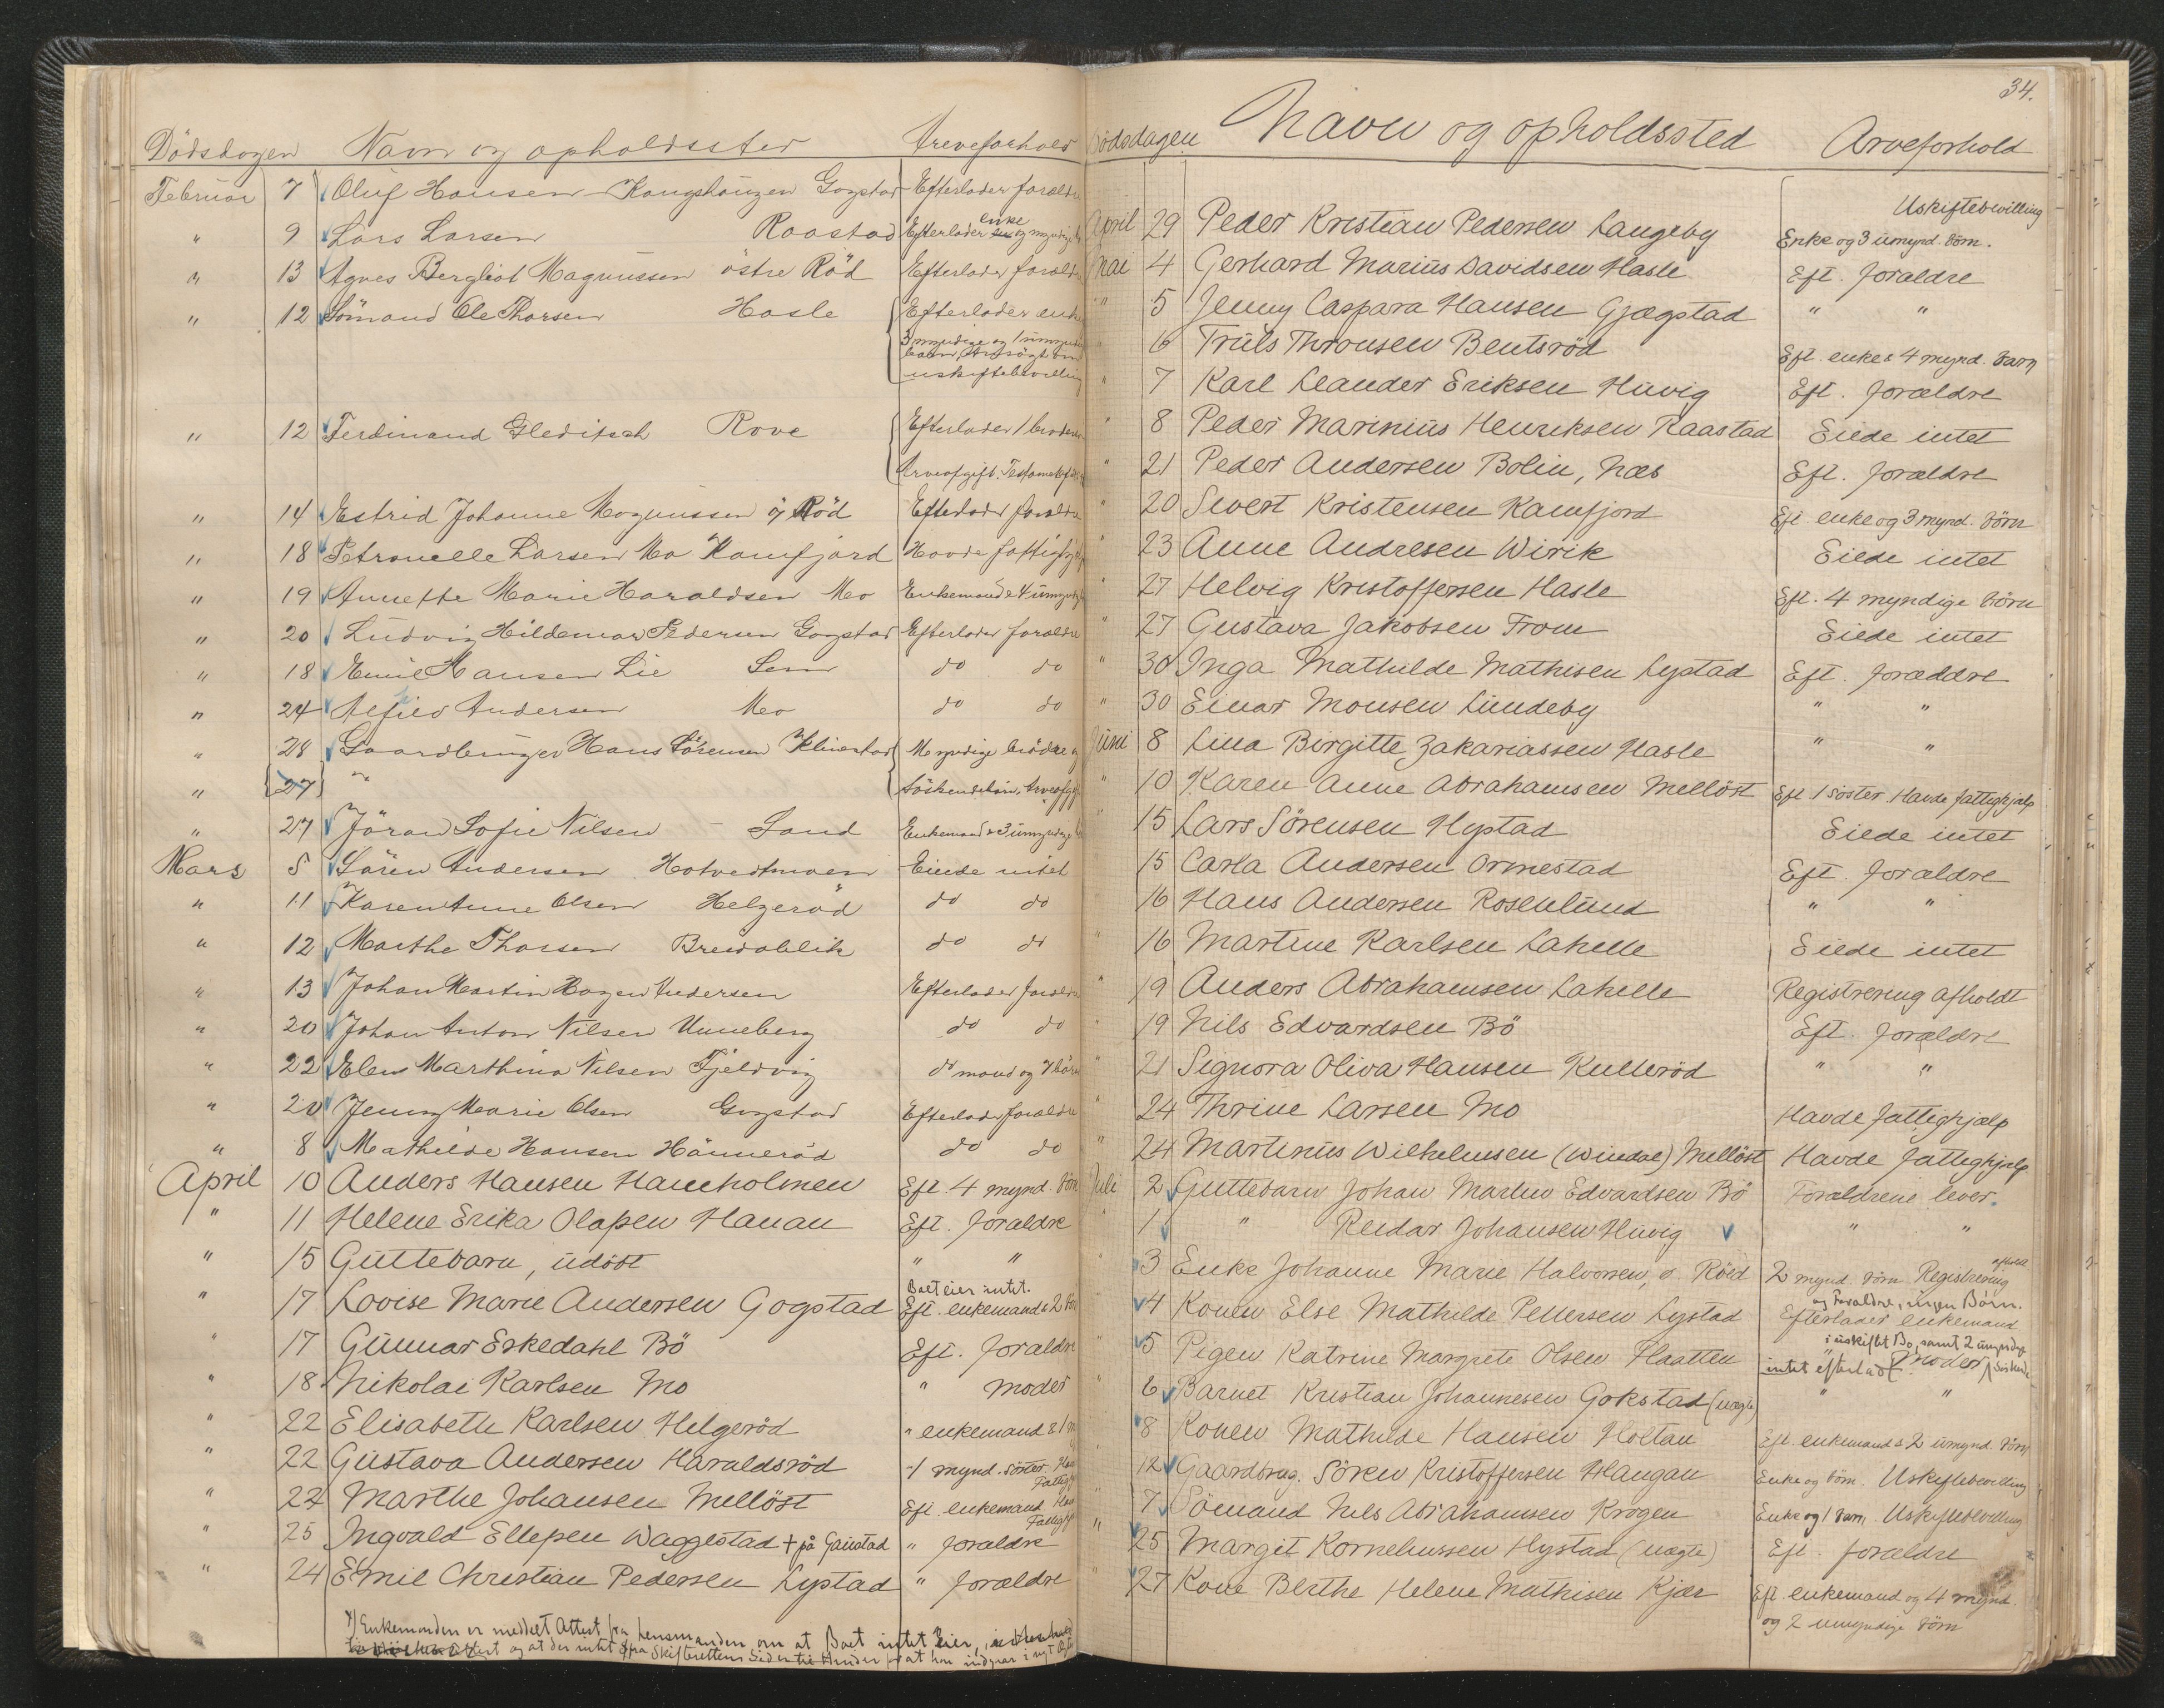 Dödsdagen Navn og opholdssted Arveforhold
Februar 7 Oluf Hansen Kongshaugen Gogstad Efterlader forældre
" 9 Lars Larsen Raastad Efterlader enke og myndige
" 13 Agnes Bergliot Magnussen östre Röd Efterlader foræld
" 12 Sömand Ole Thorsen Hasle Efterlader enke
3 myndige og 1 umyndig
barn, Ansögt om
uskiftebevilling
" 12 Ferdinand Gleditsch Rove Efterlader 1 broder
Arveafgift. Testament
" 14 Estrid Johanne Magnussen ö Röd Efterlader forældre
" 18 Petronelle Larsen Mo Kamfjord Havde fattighj
" 19 Annette Marie Haraldsen Mo Enkemand & 4 umyndige
" 20 Ludvig Hildemar Pedersen Gogstad Efterlader forældre
" 18 Emil Hansen Lie Sem do do
" 24 Alfild Andersen Mo do do
" 28 Gaardbruger Hans Sörensen Klinestad Myndige brödre og
" 27 " Söskendebörn, Arveafg
" 27 Jöran Sofie Nilsen - Sand Enkemand & 3 umyndige
Mars 5 Sören Andersen Hotvedtmoen Eiede intet
" 11 Karen Anne Olsen Helgeröd do do
" 12 Marthe Thorsen Breidablik do do
" 13 Johan Martin Hagen Andersen Efterlader foreldre
" 20 Johan Anton Nilsen Unneberg do do
" 22 Elen Marthina Nilsen Fjeldvig do mand og 7 börn
" 20 Jenny Marie Olsen Gogstad Efterlader forældre
" 8 Mathilde Hansen Hönneröd do do
April 10 Anders Hansen Hauholmen Eft. 4 mynd. börn
" 11 Helene Erika Olafsen Hauan Eft. forældre
" 15 Guttebarn, udöbt " "
Boet eier intet.
" 17 Lovise Marie Andersen Gogstad Eft. enkemand & 2 bör
" 17 Gunnar Eskedahl Bö Eft. forældre
" 18 Nikolai Karlsen Mo " moder
" 22 Elisabeth Karlsen Helgeröd " enkemand & 1
" 22 Gustava Andersen Haraldsröd " 1 mynd. söster. Hav
Fattighj
" 22 Marthe Johansen Mellöst Eft. enkemand Hav
Fattighj
" 25 Ingvald Ellefsen Waggestad + på Gaustad " forældre
" 24 Emil Christian Pedersen Lystad " forældre
*) Enkemanden er meddelt Attest fra Lensmanden om at Boet intet Eier,
Attert og at der intet fra Skifterettens Side er til Hinder for at han indgaar i nyt Ægtes
34.
Dödsdagen Navn og opholdssted Arveforhold
Uskiftebevilling
April 29 Peder Kristian Pedersen Langeby Enke og 3 umynd. börn.
Mai 4 Gerhard Marius Davidsen Hasle Eft. forældre
" 5 Jenny Caspara Hansen Gjægstad " "
" 6 Truls Thronsen Bentsröd Eft. enke & 4 mynd. barn
" 7 Karl Leander Eriksen Huvig Eft. forældre
" 8 Peder Marinius Henriksen Raastad Eiede intet
" 21 Peder Andersen Bolin, Næs Eft. forældre
" 20 Sivert Kristensen Kamfjord Eft. enke og 3 mynd. börn
" 23 Anne Andresen Wirik Eiede intet
" 27 Helvig Kristoffersen Hasle Eft. 4 myndige börn
" 27 Gustava Jakobsen From Eiede intet
" 30 Inga Mathilde Mathisen Lystad Eft. foræddre
" 30 Einar Monsen Lundeby " "
Juni 8 Lina Birgitte Zakariassen Hasle " "
" 10 Karen Anne Abrahamsen Mellöst Eft. 1 söster. Havde fattighjælp
" 15 Lars Sörensen Hystad Eiede intet
" 15 Carla Andersen Ormestad Eft. forældre
" 16 Hans Andersen Rosenlund " "
" 16 Martine Karlsen Lahelle Eiede intet
" 19 Anders Abrahamsen Lahelle Registrering afholdt
" 19 Nils Edvardsen Bö Eft. forældre
" 21 Signora Oliva Hansen Kulleröd " "
" 24 Thrine Larsen Mo Havde fattighjælp
" 24 Martinus Wilhelmsen (Windal) Mellöst Havde fattighjælp
Juli 2 Guttebarn Johan Martin Edvardsen Bö Forældrene lever.
" 1 " Reidar Johansen Huvig " "
3 Enke Johanne Marie Halvorsen, ö. Röd 2 mynd. börn Registrering afholdt
og Forældre, ingen Börn.
4 Konen Else Mathilde Pettersen Lystad Efterlader enkemand
i uskiftet Bo, samt 2 umyndige
5 Pigen Katrine Margrete Olsen Flaatten intet efterladt. Moder Söskende
6 Barnet Kristian Johannesen Gokstad (uægte) " "
8 Konen Mathilde Hansen Holtan Eft. enkemand & 2 umynd. börn
12 Gaardbrug. Sören Kristoffersen Haugan Enke og börn. Uskiftebevilling
7 Sömand Nils Abrahamsen Krogen Enke og 1 barn. Uskiftebevilling
" 25 Margit Kornelinssen Hystad (uægte) Eft. forældre
" 27 Kone Berthe Helene Mathisen Kjær Eft. enkemand og 4 mynd.
og 2 umyndige börn